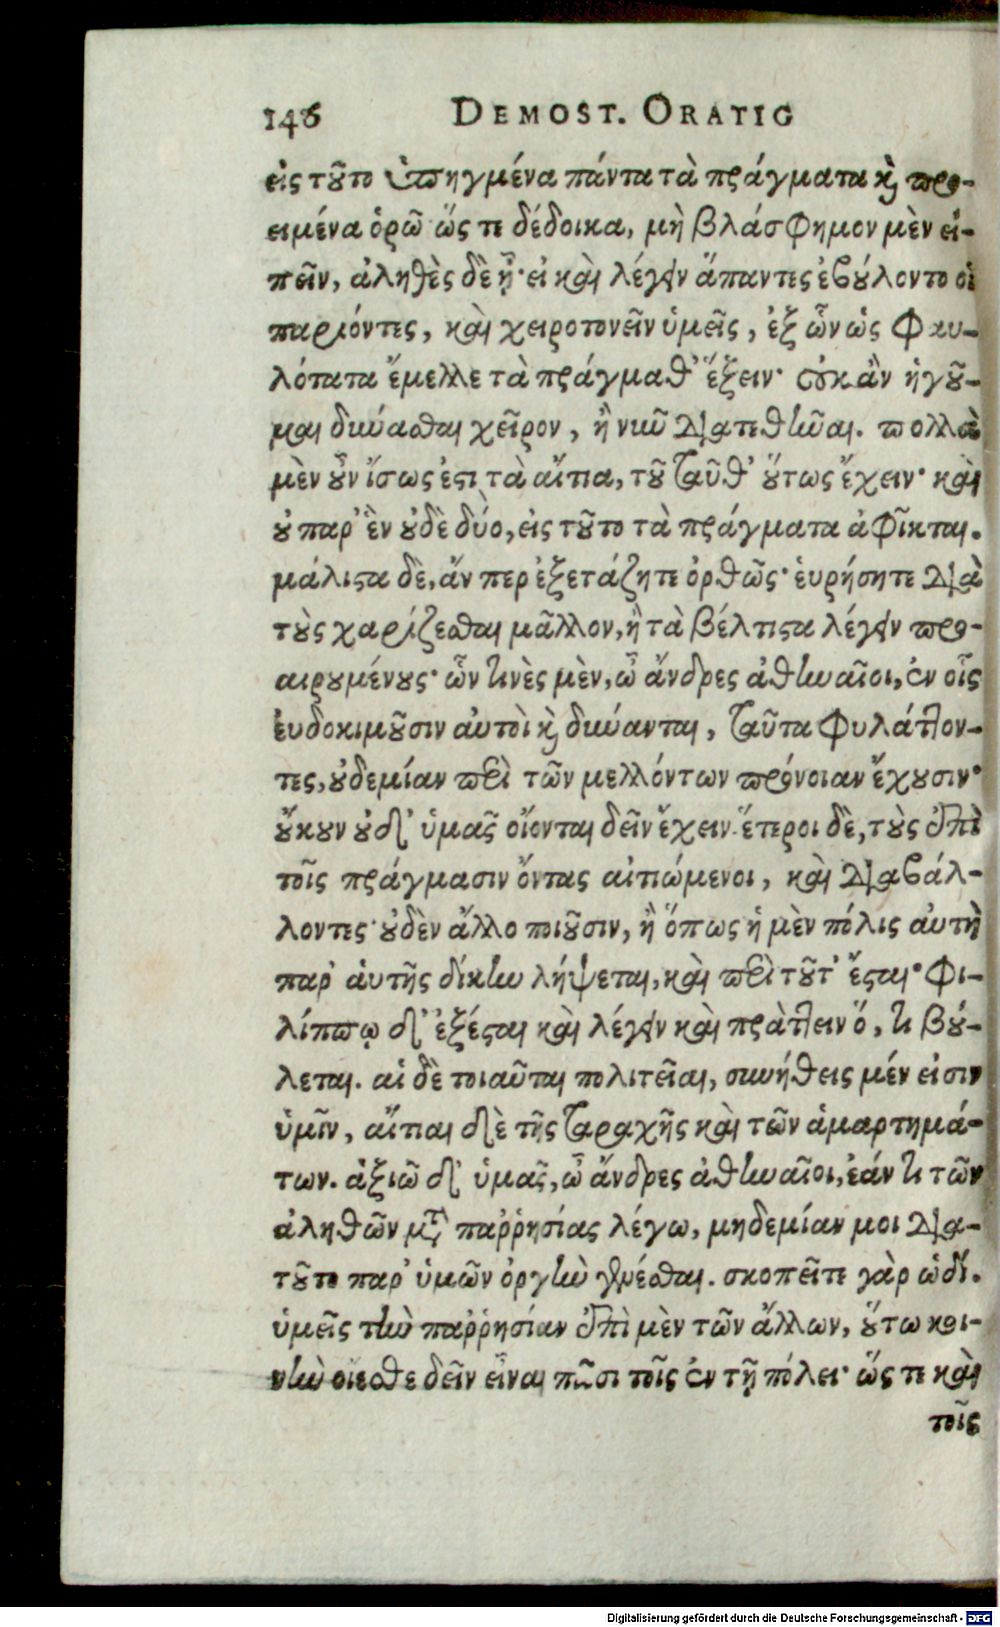 146 DEMOST. ORATIO
εἰς τοῦτο ὑπηγμένα πάντα τὰ πράγματα καὶ προ-
ειμένα ὁρῶ ὥς τε δέδοικα, μὴ βλάσφημον μὲν εἰ-
πεῖν, ἀληθὲς δὲ ᾖ· εἰ καὶ λέγειν ἅπαντες ἐβούλοντο οἱ
παριόντες, καὶ χειροτονεῖν ὑμεῖς, ἐξ ὧν ὡς φαυ-
λότατα ἔμελλε τὰ πράγμαθ' ἕξειν· οὐκ ἂν ἡγοῦ-
μαι δύνασθαι χεῖρον, ἢ νῦν διατεθῆναι. πολλὰ
μὲν οὖν ἴσως ἐστὶ τὰ αἴτια, τοῦ ταῦθ' οὕτως ἔχειν· καὶ
οὐ παρ' ἓν οὐδὲ δύο, εἰς τοῦτο τὰ πράγματα ἀφῖκται.
μάλιστα δὲ, ἄν περ ἐξετάζητε ὀρθῶς· εὑρήσητε διὰ
τοὺς χαρίζεσθαι μᾶλλον, ἢ τὰ βέλτιστα λέγειν προ-
αιρουμένους· ὧν τινὲς μὲν, ὦ ἄνδρες ἀθηναῖοι, ἐν οἷς
εὐδοκιμοῦσιν αὐτοὶ καὶ δύνανται, ταῦτα φυλάττον-
τες, οὐδεμίαν περὶ τῶν μελλόντων πρόνοιαν ἔχουσιν·
οὔκουν οὐδ' ὑμᾶς οἴονται δεῖν ἔχειν· ἕτεροι δὲ, τοὺς ἐπὶ
τοῖς πράγμασιν ὄντας αἰτιώμενοι, καὶ διαβάλ-
λοντες· οὐδὲν ἄλλο ποιοῦσιν, ἢ ὅπως ἡ μὲν πόλις αὐτὴ
παρ' αὑτῆς δίκην λήψεται, καὶ περὶ τοῦτ' ἔσται· φι-
λίππῳ δ' ἐξέσται καὶ λέγειν καὶ πράττειν ὅ, τι βού-
λεται. αἱ δὲ τοιαῦται πολιτεῖαι, συνήθεις μέν εἰσιν
ὑμῖν, αἴτιαι δὲ τῆς ταραχῆς καὶ τῶν ἁμαρτημά-
των. ἀξιῶ δ' ὑμᾶς, ὦ ἄνδρες ἀθηναῖοι, ἐάν τι τῶν
ἀληθῶν μετὰ παῤῥησίας λέγω, μηδεμίαν μοι δια-
τοῦτο παρ' ὑμῶν ὀργὴν γενέσθαι. σκοπεῖτε γὰρ ὡδί.
ὑμεῖς τὴν παῤῥησίαν ἐπὶ μὲν τῶν ἄλλων, οὕτω κοι-
νὴν οἴεσθε δεῖν εἶναι πᾶσι τοῖς ἐν τῇ πόλει· ὥς τε καὶ
τοῖς
Digitalisierung gefördert durch die Deutsche Forschungsgemeinschaft - DFG